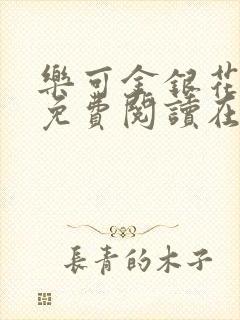 樂可金銀花
免費閱讀在
長青的木子